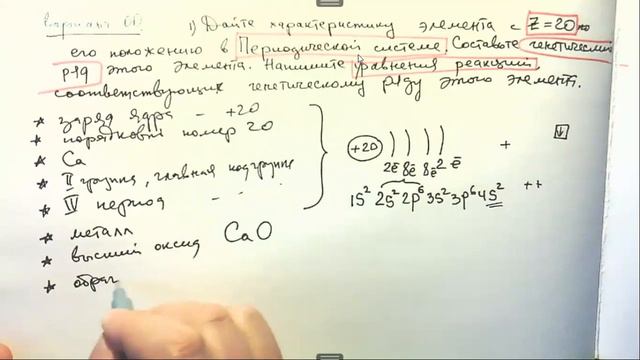 Вариант
1) Дайте характеристику элемента с Z = 20 по
его положению в Периодической системе. Составьте генетический
ряд этого элемента. Напишите уравнения реакций,
соответствующих генетическому ряду этого элемента.
* заряд ядра - +20
* порядковый номер 20
* Ca
* II группа, главная подгруппа
* IV период - " -
* металл
* высший оксид CaO
* обра
+20 ) ) ) ) +
2ē 8ē 8ē 2ē
1s² 2s² 2p⁶ 3s² 3p⁶ 4s² ++